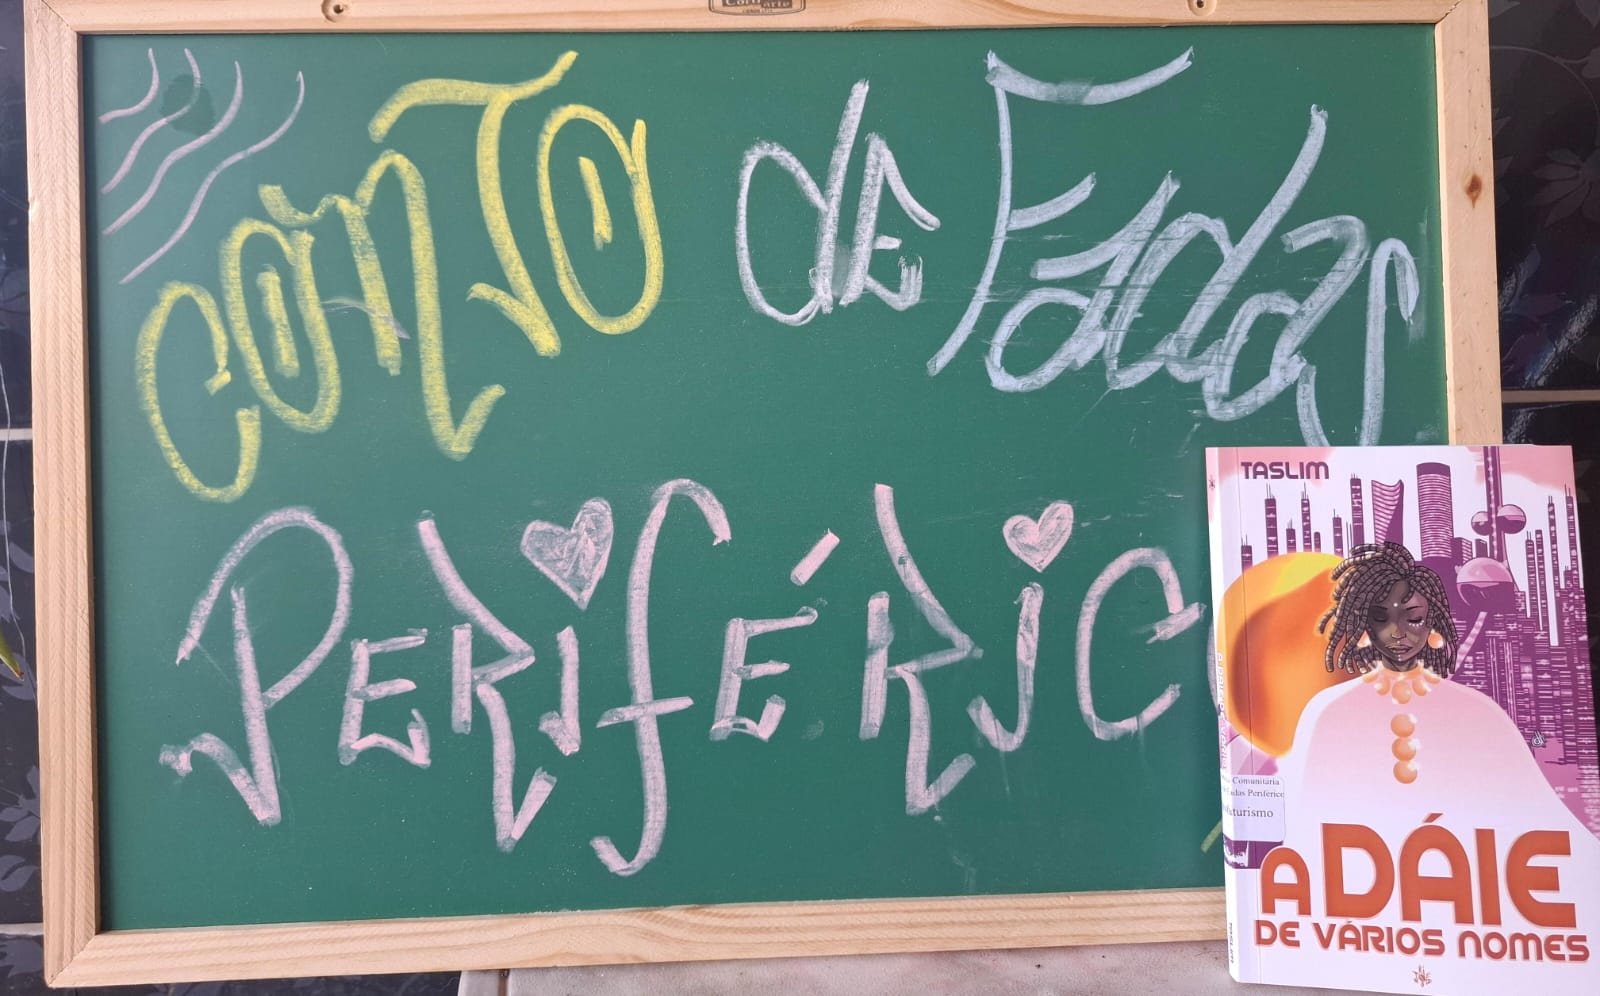 CONTO de Fadas
PERIFÉRIC
TASLIM
Comunitária
adas Periférico
uturismo
A DÁIE
DE VÁRIOS NOMES